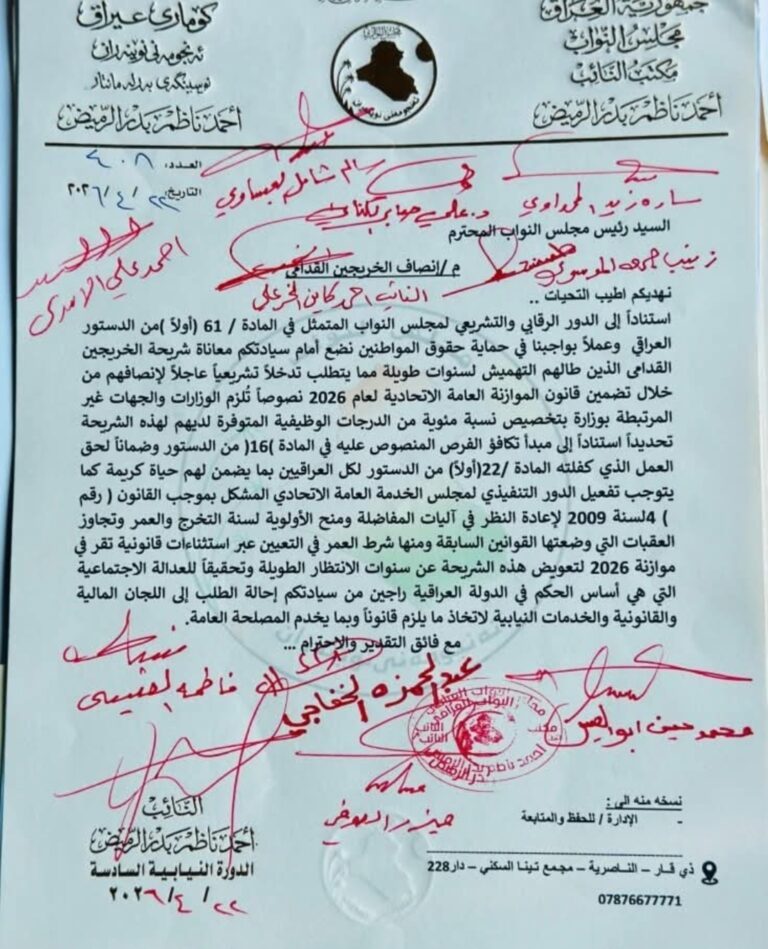 جمهورية العراق
مجلس النواب
مكتب النائب
أحمد ناظم بدر الرميض
كۆماری عیراق
ئەنجومەنی نوێنەران
نوسینگەی پەرلەمانتار
أحمد ناظم بدر الرميض
العدد: ٤٠٨
التاريخ: ٢٢/٤/٢٠٢٦
سالم شامل العيساوي
السيد رئيس مجلس النواب المحترم
م /إنصاف الخريجين القدامى
زينب جمعه الموسوي
احمد علي الاسدي
نهديكم اطيب التحيات ..
استناداً إلى الدور الرقابي والتشريعي لمجلس النواب المتمثل في المادة / 61 (أولاً )من الدستور
العراقي وعملاً بواجبنا في حماية حقوق المواطنين نضع أمام سيادتكم معاناة شريحة الخريجين
القدامى الذين طالهم التهميش لسنوات طويلة مما يتطلب تدخلاً تشريعياً عاجلاً لإنصافهم من
خلال تضمين قانون الموازنة العامة الاتحادية لعام 2026 نصوصاً تُلزم الوزارات والجهات غير
المرتبطة بوزارة بتخصيص نسبة مئوية من الدرجات الوظيفية المتوفرة لديهم لهذه الشريحة
تحديداً استناداً إلى مبدأ تكافؤ الفرص المنصوص عليه في المادة )16( من الدستور وضماناً لحق
العمل الذي كفلته المادة /22(أولاً) من الدستور لكل العراقيين بما يضمن لهم حياة كريمة كما
يتوجب تفعيل الدور التنفيذي لمجلس الخدمة العامة الاتحادي المشكل بموجب القانون ( رقم
) 4لسنة 2009 لإعادة النظر في آليات المفاضلة ومنح الأولوية لسنة التخرج والعمر وتجاوز
العقبات التي وضعتها القوانين السابقة ومنها شرط العمر في التعيين عبر استثناءات قانونية تقر في
موازنة 2026 لتعويض هذه الشريحة عن سنوات الانتظار الطويلة وتحقيقاً للعدالة الاجتماعية
التي هي أساس الحكم في الدولة العراقية راجين من سيادتكم إحالة الطلب إلى اللجان المالية
والقانونية والخدمات النيابية لاتخاذ ما يلزم قانوناً وبما يخدم المصلحة العامة.
مع فائق التقدير والاحترام ...
عبد الحمزه الخفاجي
النائب
أحمد ناظم بدر الرميض
الدورة النيابية السادسة
٢٢/٤/٢٠٢٦
نسخه منه الى:
- الإدارة / للحفظ والمتابعة
ذي قار – الناصرية – مجمع تينا السكني – دار228
07876677771